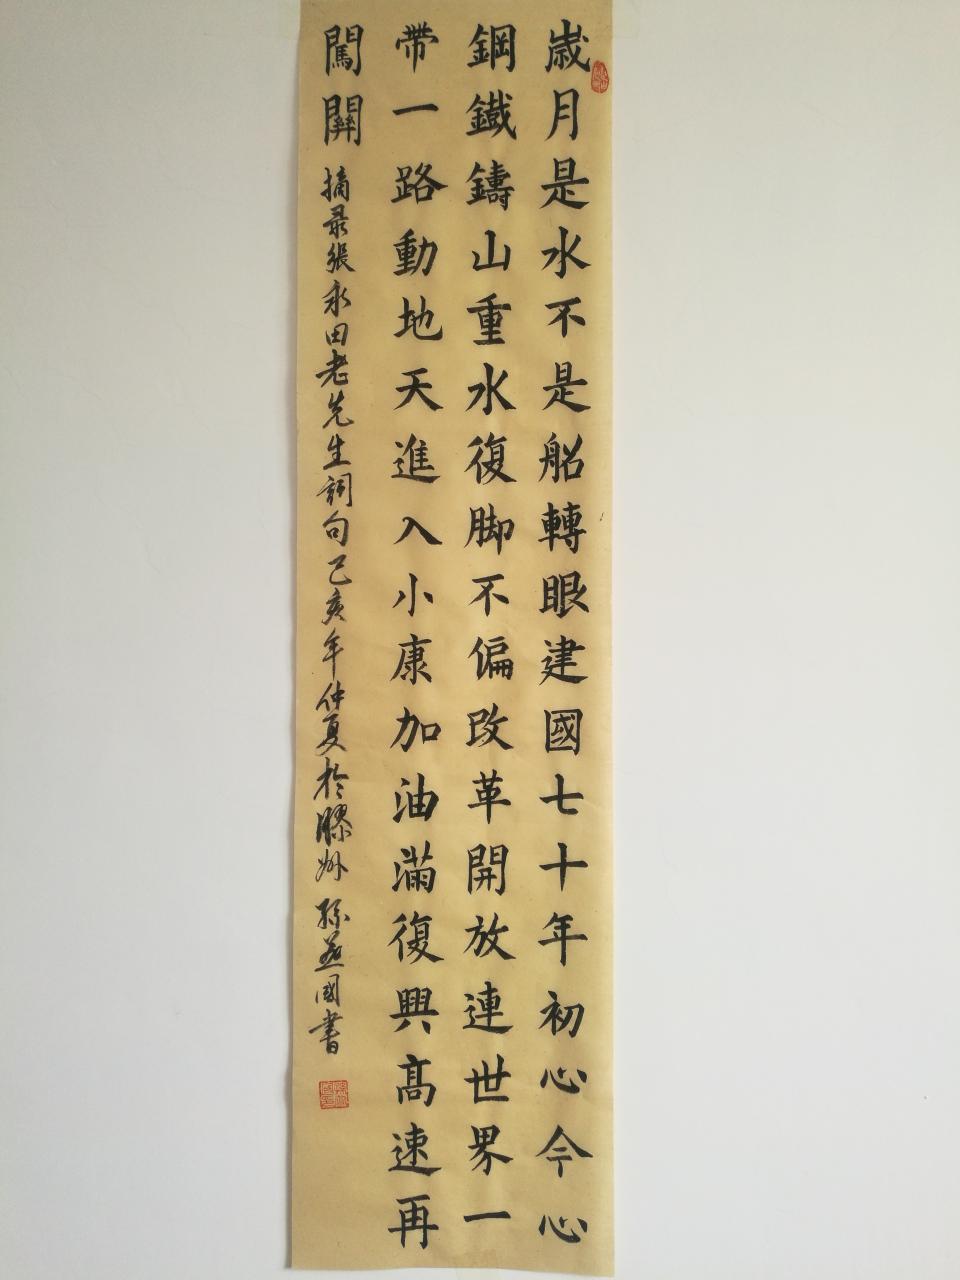 歲月是水不是船轉眼建國七十年初心今心
鋼鐵鑄山重水復脚不偏改革開放連世界一
帶一路動地天進入小康加油滿復興高速再
闖關
摘录張永田老先生詞句己亥年仲夏於膠州孫燕國書